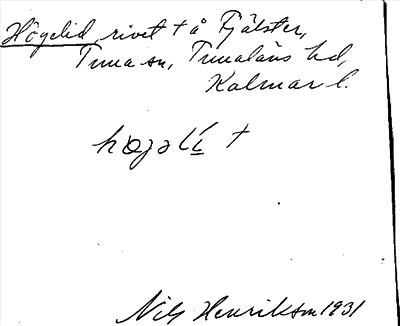 Högelid, rivet † å Fjälster,
Tuna sn, Tunaläns hd,
Kalmar l.
høgalí †
Nils Henrikson 1931